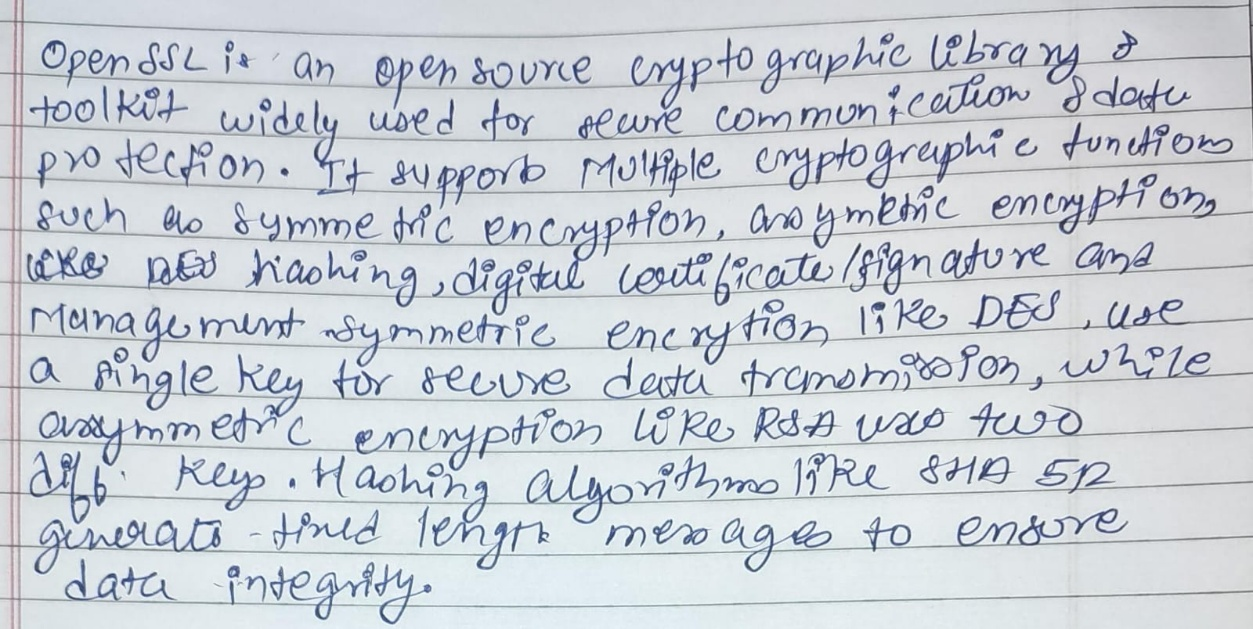 OpenSSL is an open source cryptographic library &
toolkit widely used for secure communication & data
protection. It supports Multiple cryptographic functions
such as symmetric encryption, assymetric encryption,
hashing, digital certificate/signature and
Management symmetric encrytion like DES, use
a single key for secure data transmission, while
assymmetric encryption like RSA uses two
diff. keys. Hashing algorithms like SHA 512
generats fixed length messages to ensure
data integrity.